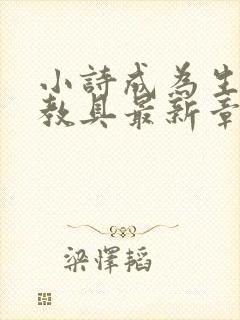 小詩成為生
教具最新章
梁懌韜